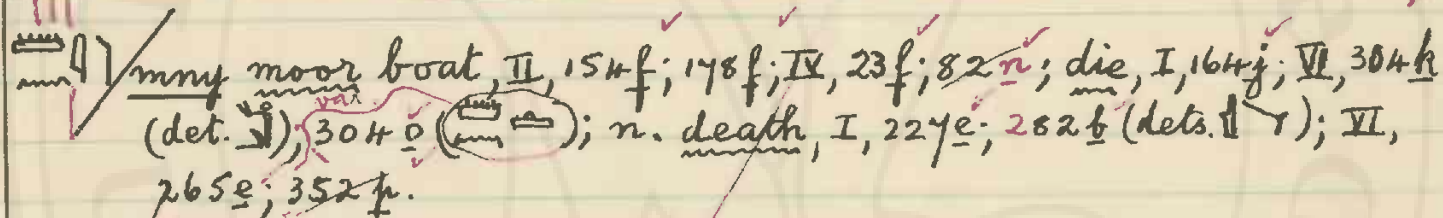 mny moor boat, II, 154f; 178f; IV, 23f; 82n; die, I, 164j; VI, 304k
(det. ); var 304o ( ); n. death, I, 227e; 282b (dets. ); VI,
265e; 352p.